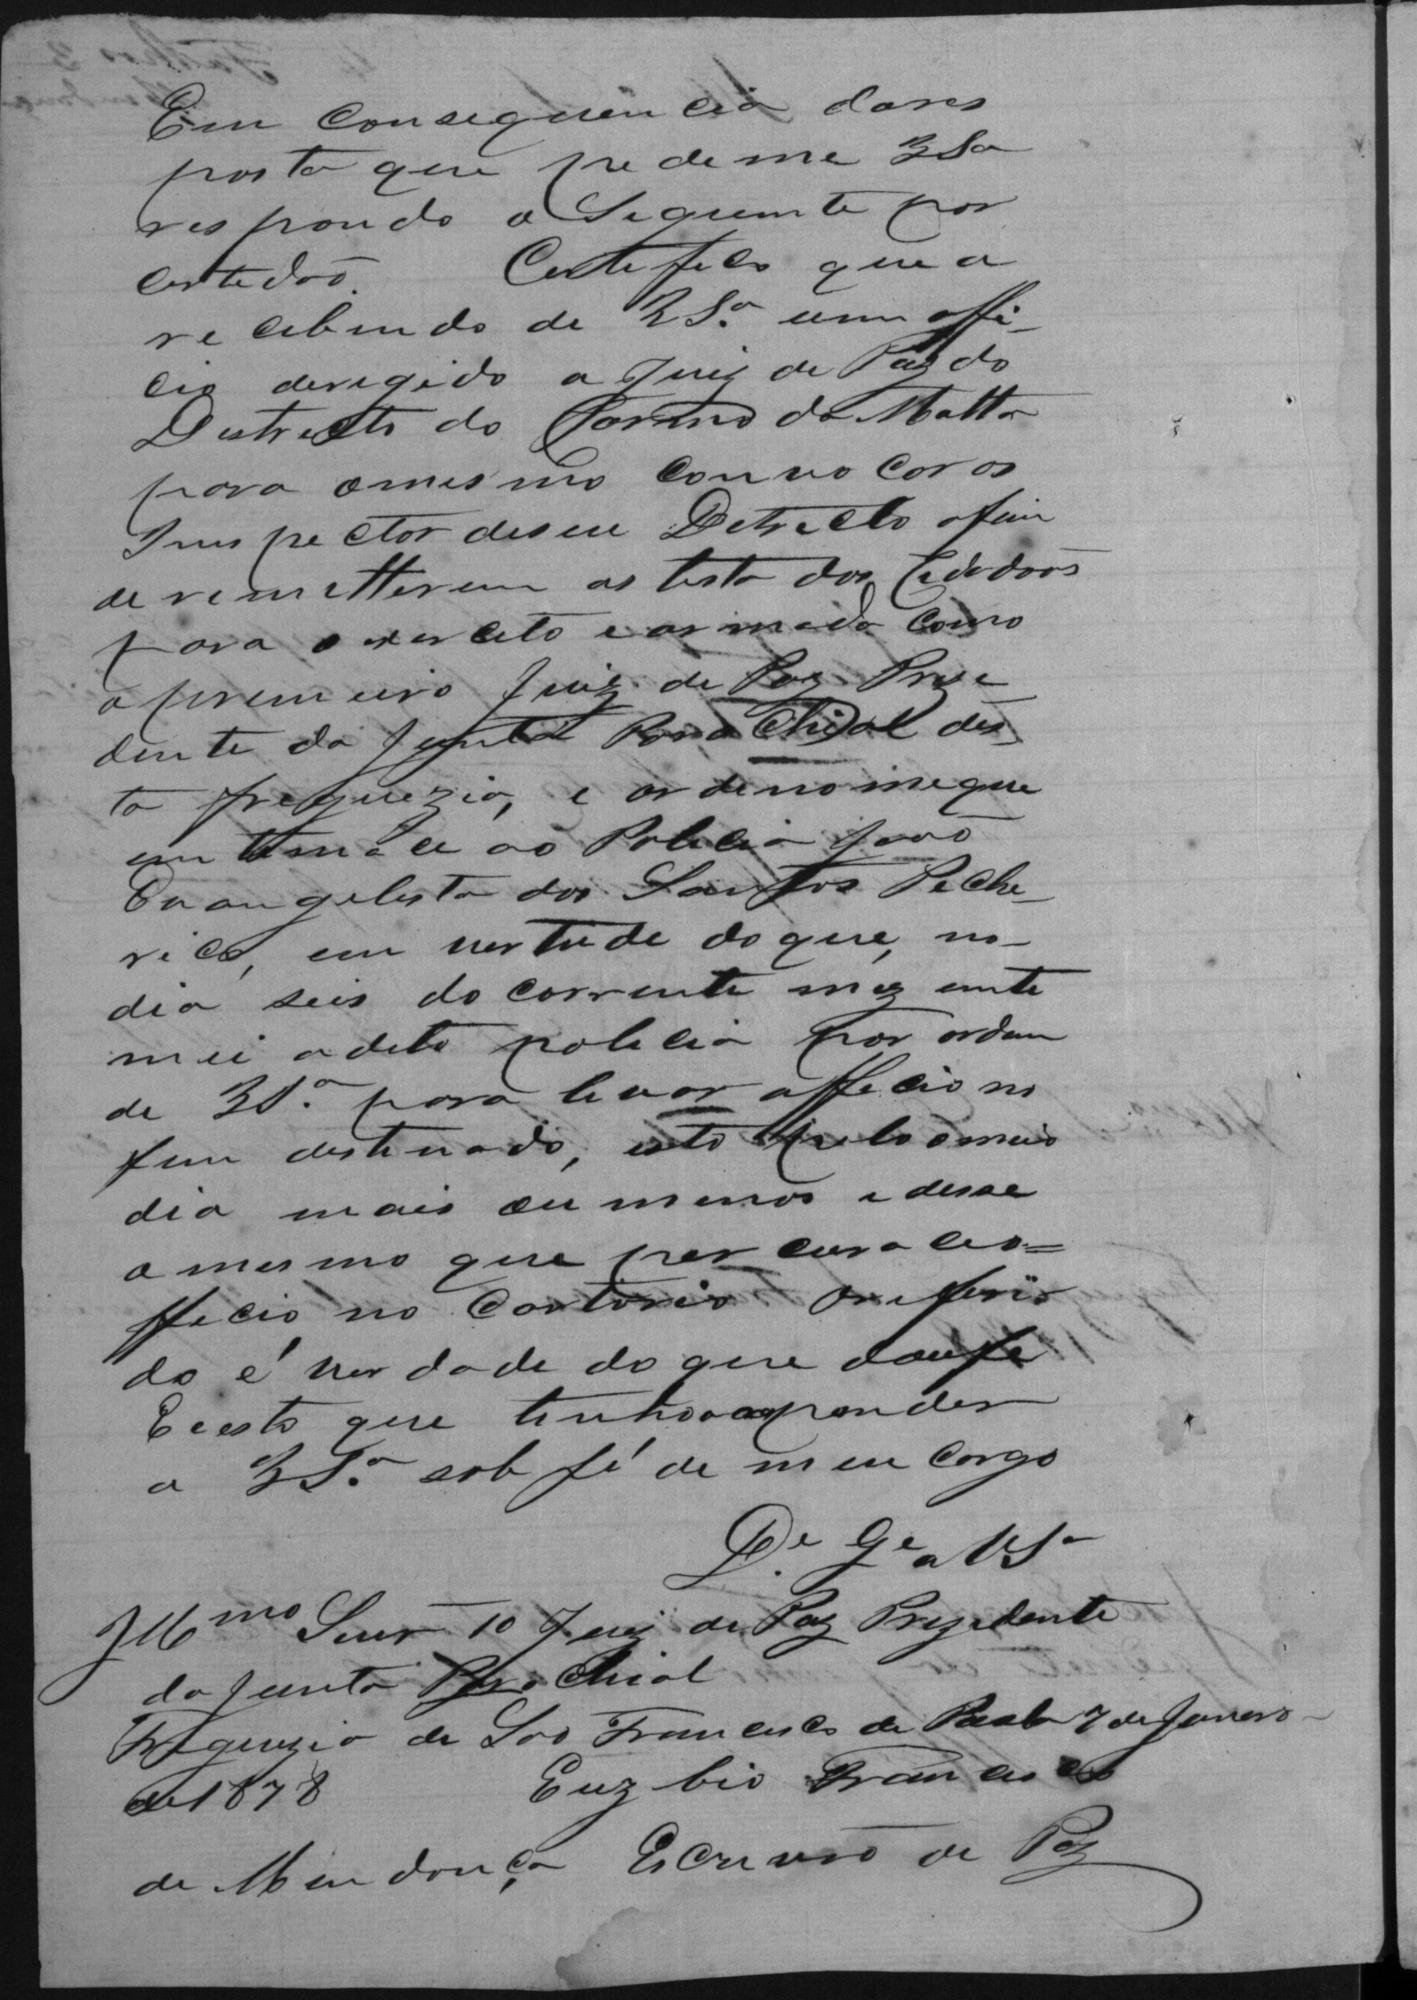 Em consequencia dares
posta que pedeme VSa
respondo o Seguente por
certedaõ. Certefeco que a
recebendo de VSª um offi-
cio deregido a Juiz de Paz do
Destrecto do Carmo da Matta
para omesmo convocar os
Inspector deseu Detrecto afim
de remetterem as lesta dos Cedadaõs
para o exerceto e armada como
o premeiro Juiz de Paz Preze
dente da Junta Parochial des
ta freguezia, e ordenome que
entemace ao Polecia Joaõ
Evangelesta dos Santos Peche-
rico, em vertude do que, no
dia seis do corrente mez ente
mei a deto polecia por ordem
de VSª para levar offecio no
fim destenado, esto pelo o meio
dia mais ou menos e desse
o mesmo que percuraceo=
ffecio no Cartorio oreferi
do é verdade do que dou fe
E esto que tenho aresponder
a VSª sob fé de meu Cargo
D.e G.e a VSª
Illmo Senr 1o Juiz de Paz Prezedente
da Junta Parochial
Freguezia de Sao Francesco de Paula 7 de Janero
de 1878 Euzbio Francesco
de Mendonça Escrevaõ de Paz